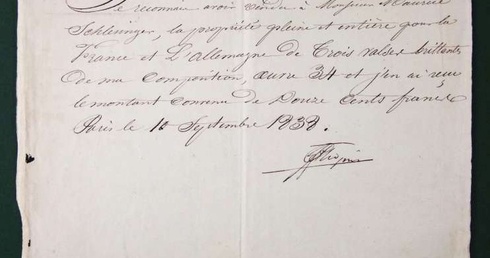 Je reconnais avoir vendu à Monsieur Maurice
Schlesinger, la propriété pleine et entière pour la
France et L'allemagne de Trois valses brillantes
de ma Composition, œuvre 34 et j'en ai reçu
le montant convenu de Douze Cents francs
Paris le 10 Septembre 1838.
FChopin